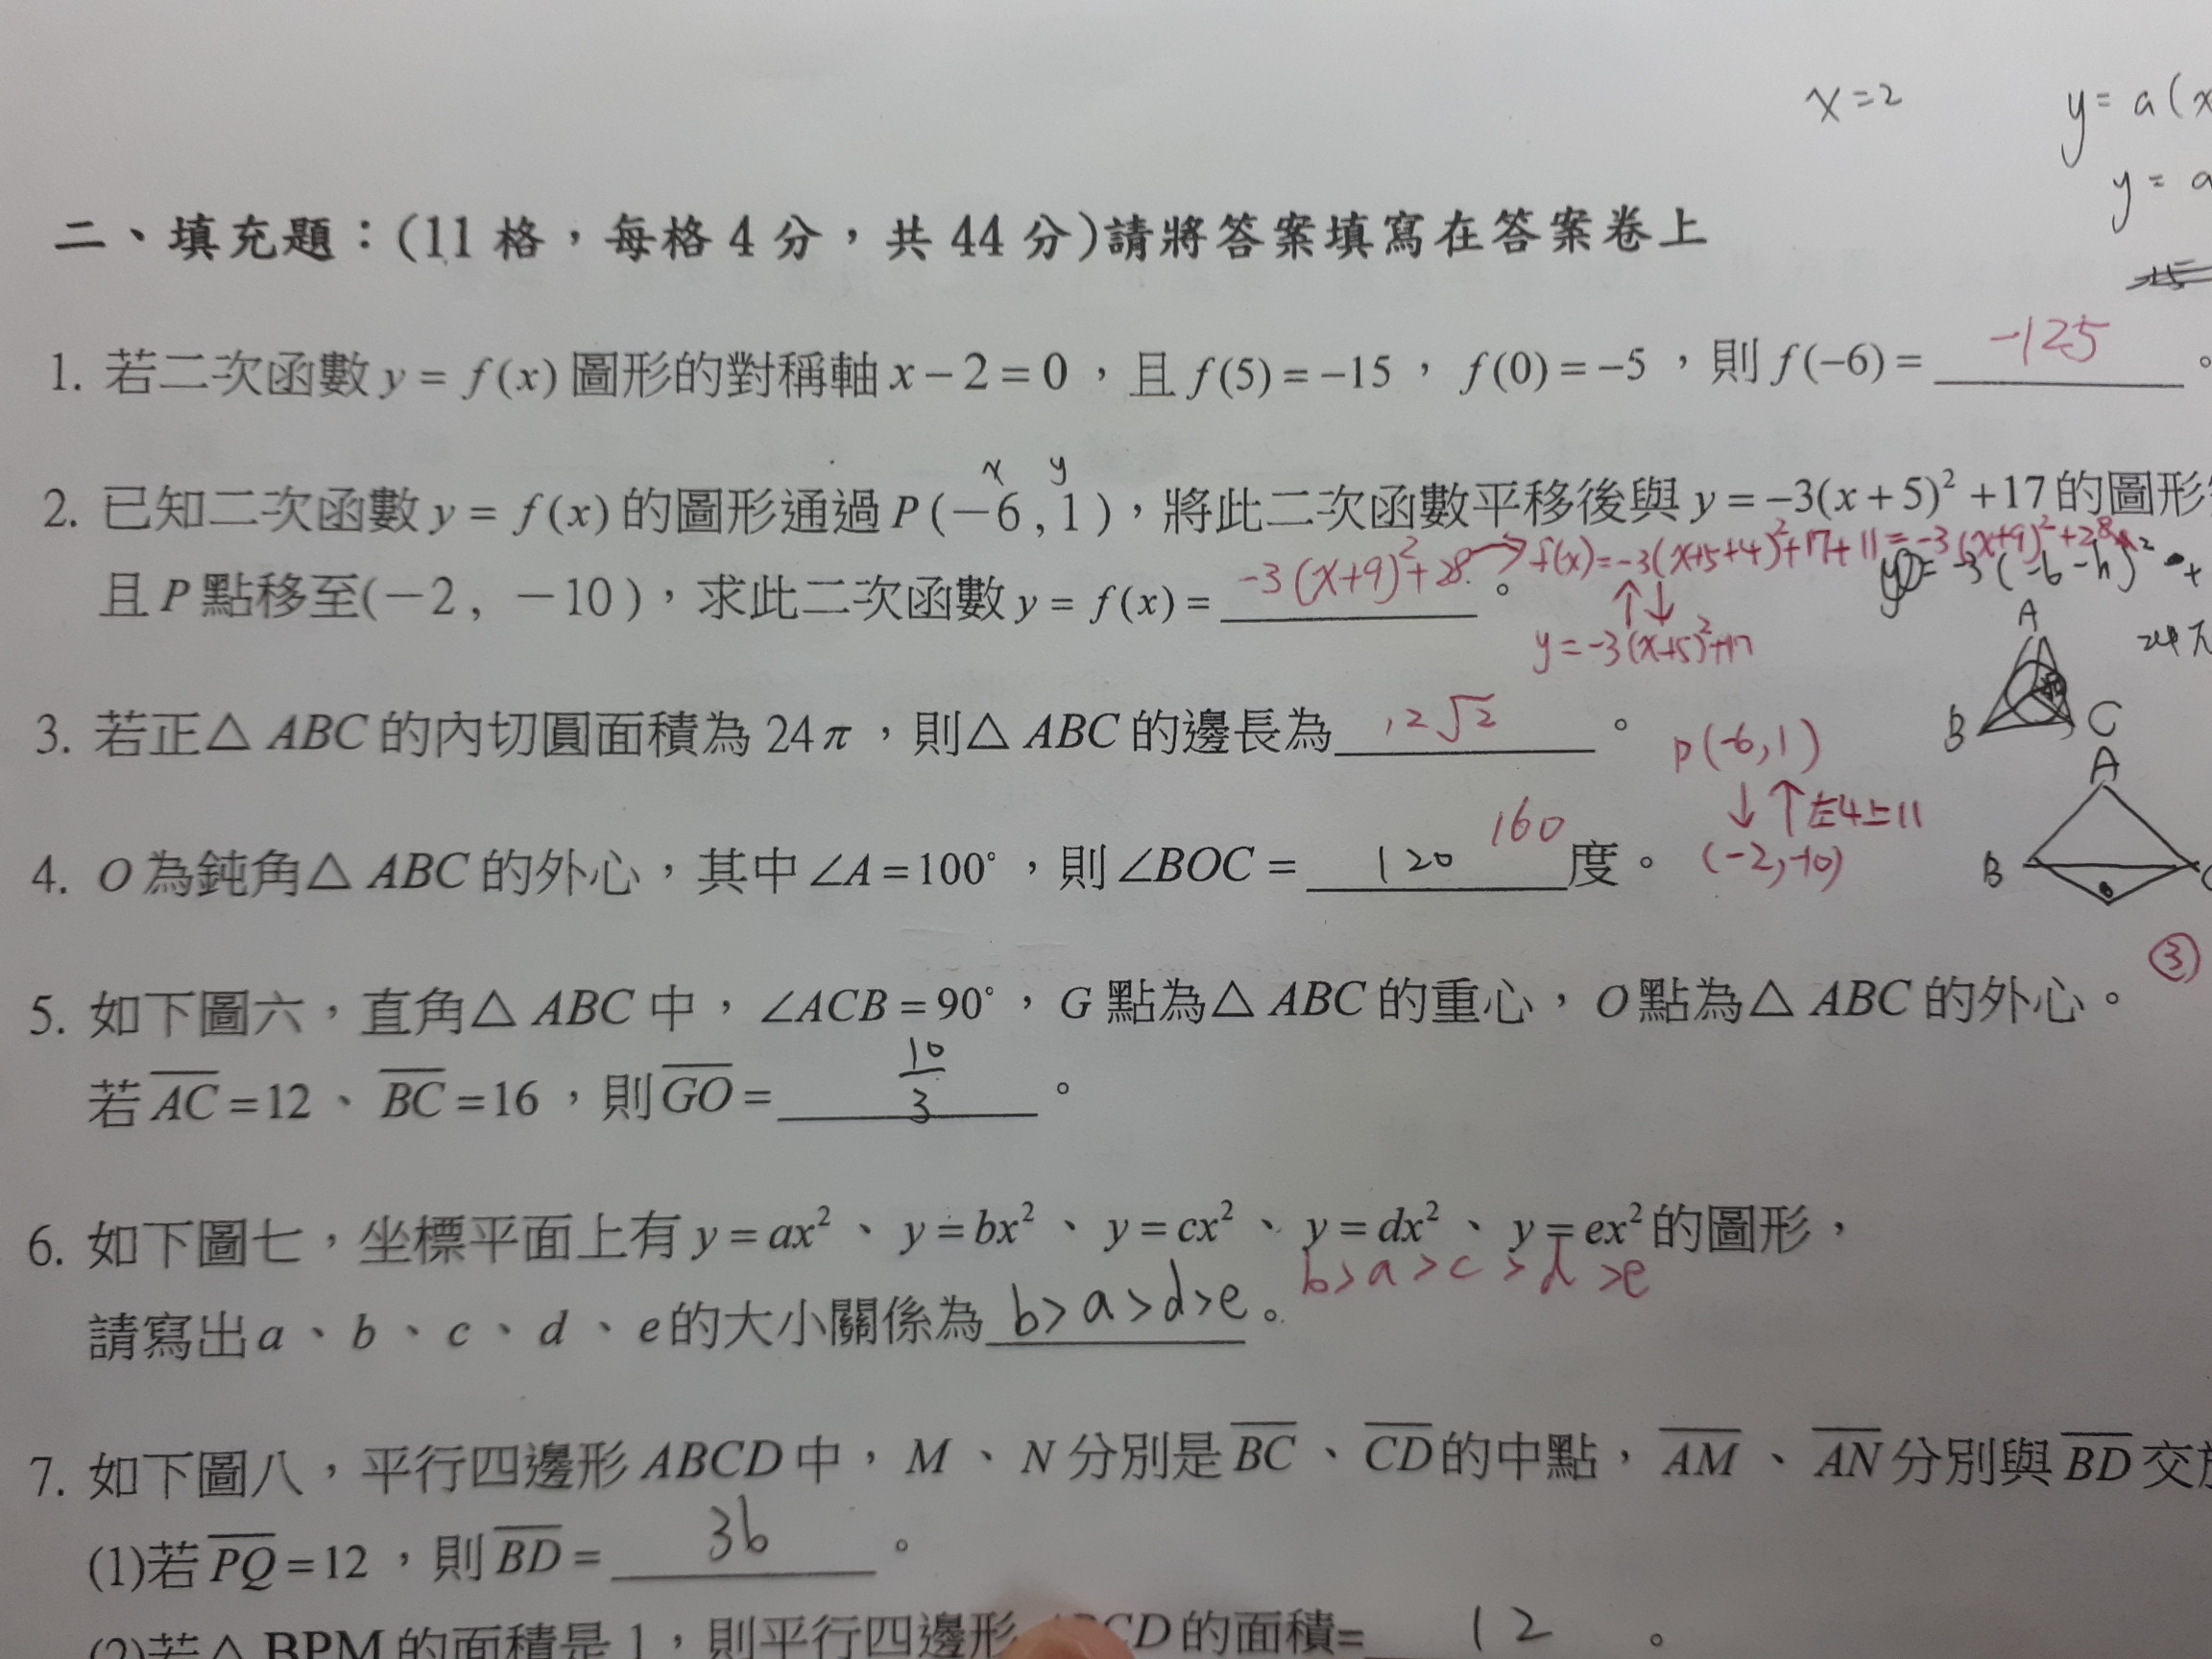 x=2
y= a(x
y= a
二、填充題：(11 格，每格 4 分，共 44 分)請將答案填寫在答案卷上
1. 若二次函數 y = f(x) 圖形的對稱軸 x − 2 = 0 ，且 f(5) = −15 ， f(0) = −5 ，則 f(−6) = -125 。
2. 已知二次函數 y = f(x) 的圖形通過 P (−6 , 1 )，將此二次函數平移後與 y = −3(x + 5)² +17 的圖形
x y
f(x)=-3(x+5+4)²+17+11=-3(x+9)²+28
且 P 點移至(−2 , −10 )，求此二次函數 y = f(x) = -3(x+9)²+28 。
y=-3(x+5)²+17
A
24π
B C
3. 若正△ ABC 的內切圓面積為 24π ，則△ ABC 的邊長為 12√2 。
P(-6,1)
A
左4上11
(-2,-10)
B
4. O 為鈍角△ ABC 的外心，其中 ∠A = 100° ，則 ∠BOC = 120 160 度。
③
5. 如下圖六，直角△ ABC 中， ∠ACB = 90° ， G 點為△ ABC 的重心， O 點為△ ABC 的外心。
若 AC =12 、 BC =16 ，則 GO = 10/3 。
6. 如下圖七，坐標平面上有 y = ax² 、 y = bx² 、 y = cx² 、 y = dx² 、 y = ex² 的圖形，
b>a>c>d>e
請寫出 a 、 b 、 c 、 d 、 e 的大小關係為 b>a>d>e 。
7. 如下圖八，平行四邊形 ABCD 中， M 、 N 分別是 BC 、 CD 的中點， AM 、 AN 分別與 BD 交
(1)若 PQ =12 ，則 BD = 36 。
(2)若△ BPM 的面積是 1，則平行四邊形 CD 的面積= 12 。